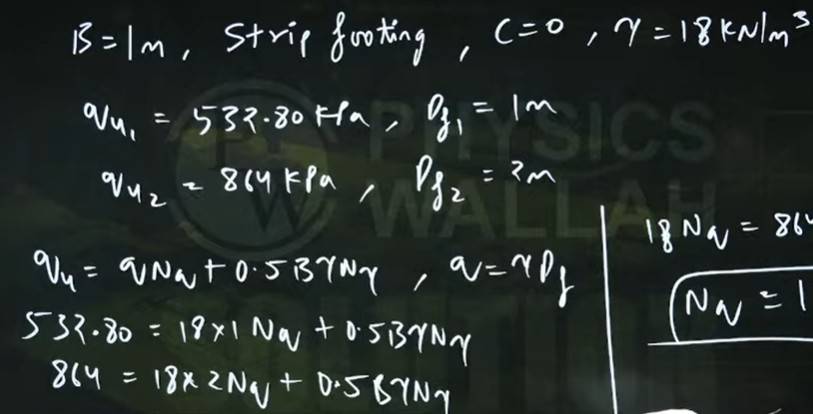 B = 1m, Strip footing, C=0, γ = 18 kN/m³
qu₁ = 532.80 kPa, Df₁ = 1m
qu₂ = 864 kPa, Df₂ = 2m
qu = qNq + 0.5BγNγ, q = γDf
532.80 = 18×1 Nq + 0.5BγNγ
864 = 18×2Nq + 0.5BγNγ
18 Nq = 864
Nq = 1
PHYSICS
WALLAH